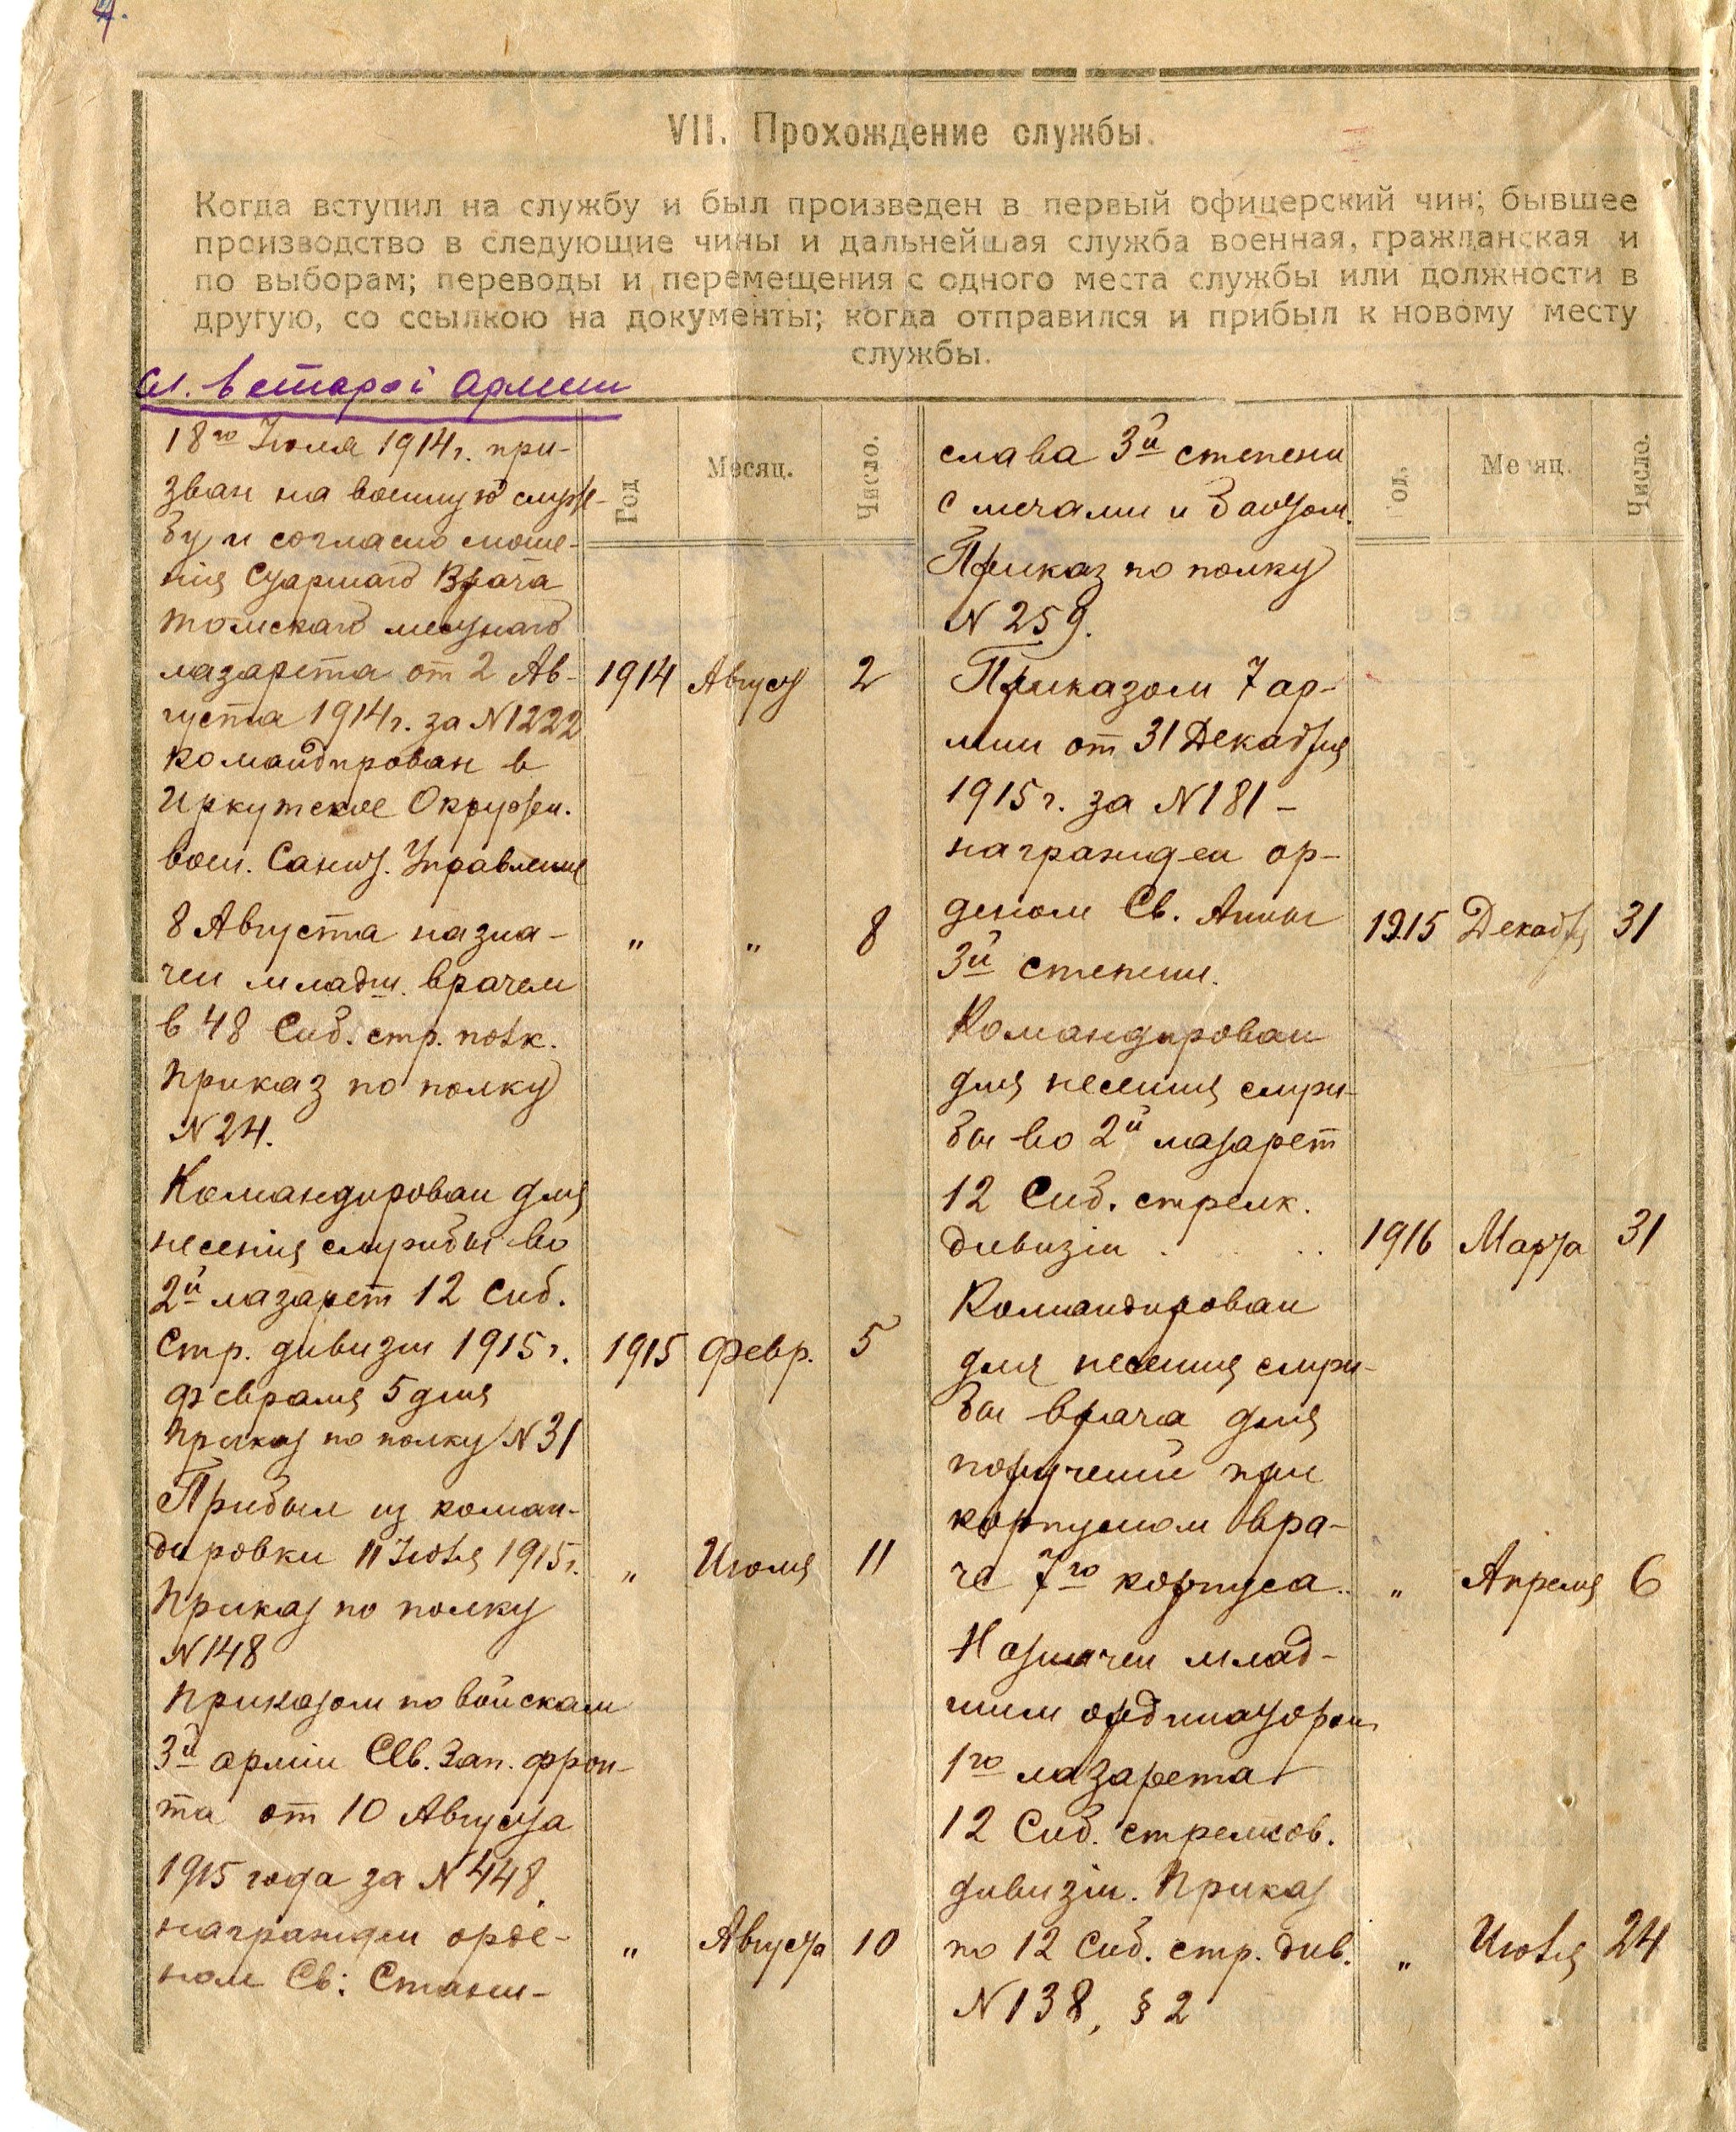 4.
VII. Прохождение службы.
Когда вступил на службу и был произведен в первый офицерский чин; бывшее
производство в следующие чины и дальнейшая служба военная, гражданская и
по выборам; переводы и перемещения с одного места службы или должности в
другую, со ссылкою на документы; когда отправился и прибыл к новому месту
службы.
в старой армии
Год
Месяц.
Число.
18го Июля 1914г. при-
зван на военную служ-
бу и согласно сноше-
нія Старшаго Врача
томскаго местнаго
лазарета от 2 Ав-
1914 Август 2
густа 1914г. за N1222
командирован в
Иркутское Окружн.
воен. Санит. Управление
8 Августа назна-
„ „ 8
чен младш. врачем
в 48 Сиб. стр. полк.
Приказ по полку
N24.
Командирован для
несенія службы во
2й лазарет 12 Сиб.
Стр. дивизіи 1915г.
1915 Февр. 5
февраля 5 дня
Приказ по полку N31
Прибыл из коман-
дировки 11 Июля 1915г.
„ Июля 11
Приказ по полку
N148
Приказом по войскам
3й арміи Сев. Зап. фрон-
та от 10 Августа
1915 года за N448
награжден орде-
„ Августа 10
ном Св: Стани-
слава 3й степени
Год.
Месяц.
Число.
с мечами и бантом.
Приказ по полку
N259.
Приказом 7 ар-
мии от 31 Декабря
1915г. за N181 –
награжден ор-
деном Св. Анны
1915 Декабря 31
3й степени.
Командирован
для несения служ-
бы во 2й лазарет
12 Сиб. стрелк.
дивизіи . . ..
1916 Марта 31
Командирован
для несения служ-
бы врача для
поручений при
корпусном вра-
че 7го корпуса..
„ Апреля 6
Назначен млад-
шим ординатором
1го лазарета
12 Сиб. стрелков.
дивизіи. Приказ
по 12 Сиб. стр. див.
„ Июля 24
N138, § 2